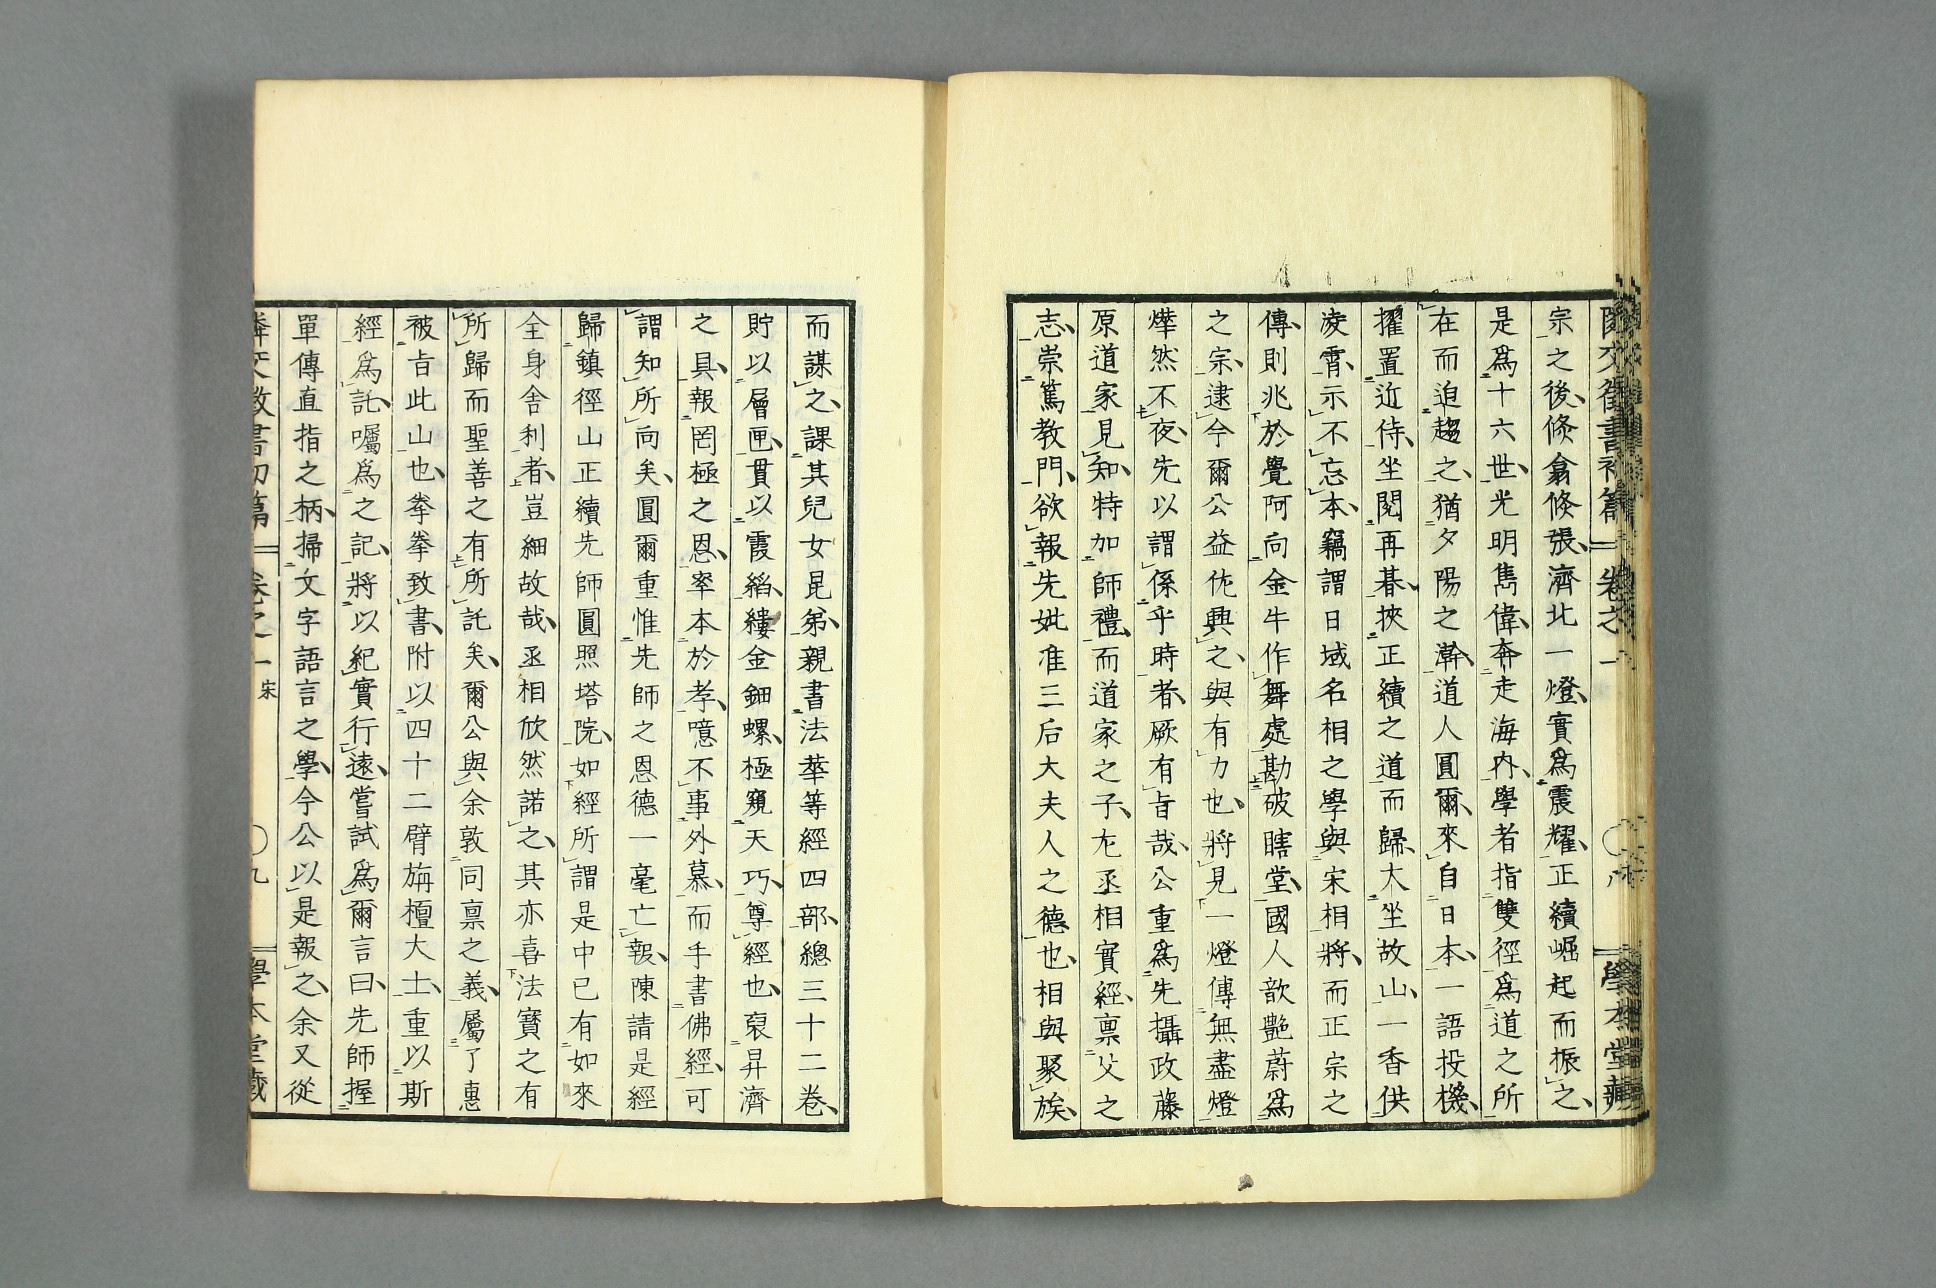 宗之後倏翕倏張濟北一燈實爲震耀正續崛起而振之
是爲十六世光明雋偉奔走海內學者指雙徑爲道之所
在而迫趨之猶夕陽之澣道人圓爾來自日本一語投機
擢置近侍坐閱再朞挾正續之道而歸大坐故山一香供
凌霄示不忘本竊謂日域名相之學與宋相將而正宗之
傳則兆於覺阿向金牛作舞處勘破瞎堂國人歆艷蔚爲
之宗逮今爾公益佐興之與有力也將見一燈傳無盡燈
燁然不夜先以謂係乎時者厥有旨哉公重爲先攝政藤
原道家見知特加師禮而道家之子左丞相實經稟父之
志崇篤教門欲報先妣准三后大夫人之德也相與聚族
而謀之課其兒女昆弟親書法華等經四部總三十二卷
貯以層匣貫以霞縚縷金鈿螺極窺天巧尊經也裒昇濟
之具報罔極之恩率本於孝噫不事外慕而手書佛經可
謂知所向矣圓爾重惟先師之恩德一毫亡報陳請是經
歸鎮徑山正續先師圓照塔院如經所謂是中已有如來
全身舍利者豈細故哉丞相欣然諾之其亦喜法寶之有
所歸而聖善之有所託矣爾公與余敦同稟之義屬了惠
被旨此山也拳拳致書附以四十二臂旃檀大士重以斯
經爲託囑爲之記將以紀實行遠嘗試爲爾言曰先師握
單傳直指之柄掃文字語言之學今公以是報之余又從
鄰交徵書初篇 卷之一 宋 〇九 學本堂藏